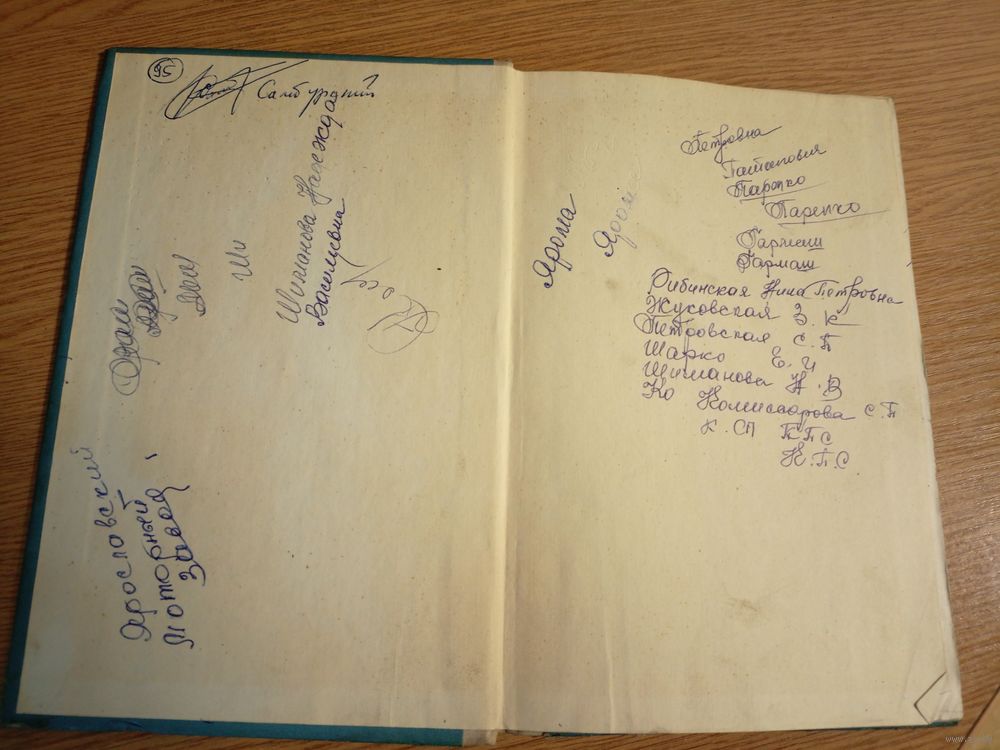 95
Шиманова Надежда
Васильевна
Ши
Ярославский
Моторный
Завод
Ярома
Яром
Петровна
Паропко
Паренко
Гармаш
Гармаш
Рибинская Нина Петровна
Жуковская З. К
Петровская С. П
Шарко Е. И
Шиманова Н. В
Ко Комиссарова С. П
К. СП КПС
Н. П. С.